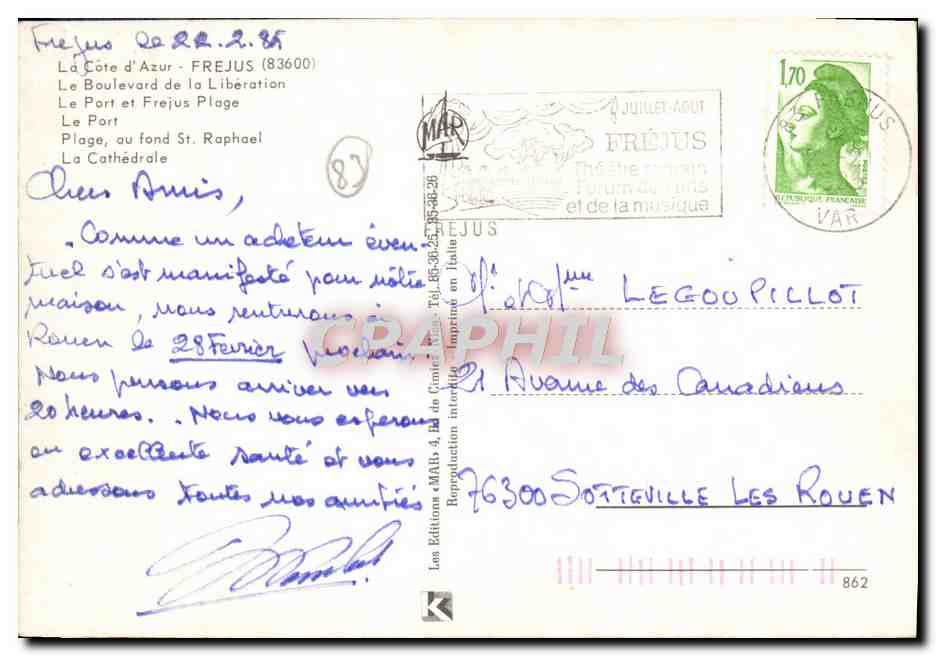 Frejus le 22.2.85
La Côte d'Azur - FREJUS (83600)
Le Boulevard de la Libération
Le Port et Frejus Plage
Le Port
Plage, au fond St. Raphael
La Cathédrale
83
Chers Amis,
. Comme un acheteur éven-
tuel s'est manifesté pour nôtre
maison, nous rentrerons à
Rouen le 28 Fevrier prochain.
Nous pensons arriver vers
20 heures. . Nous vous esperons
en excellente santé et vous
adressons toutes nos amitiés
Les Editions «MAR» 4, Bd de Cimiez Nice - Tél. 85-36-25, 85-36-26
Reproduction interdite - Imprimé en Italie
MAR
JUILLET-AOUT
FRÉJUS
Théâtre romain
Forum des arts
et de la musique
FREJUS
1,70
REPUBLIQUE FRANÇAISE
83 FREJUS
VAR
Mr et Mme LEGOUPILLOT
21 Avenue des Canadiens
76300 SOTTEVILLE LES ROUEN
862
K
CPAPHIL